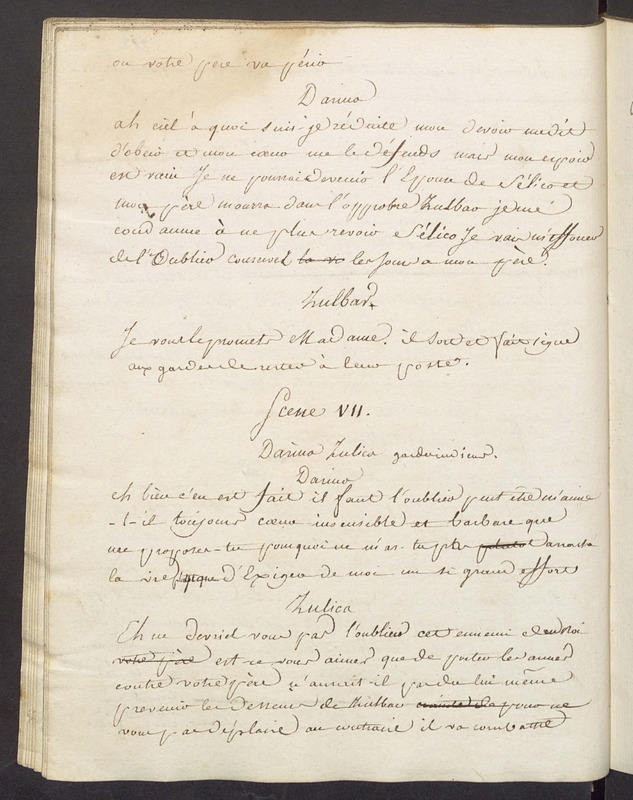 ou votre pere va périr
Darina
ah ciel à quoi suis-je réduite mon devoir me dit
d'obeir et mon cœur me le défends mais mon espoir
est vain Je ne pourrai devenir l'Epouse de Sélico et
mon père mourra dans l'opprobre Zulbar je me
condamne à ne plus revoir Sélico Je vais m'efforcer
de l'Oublier conservez la vi les jours a mon père.
Zulbar
Je vous le promets Madame. il sort et fait signe
aux gardes de rester à leur poste.
Scene VII.
Darina Zulica gardes
Darina
eh bien c'en est fait il faut l'oublier peut être m'aime
-t-il toujours cœur insensible et barbare que
me proposes-tu pourquoi ne m'as-tu plutot arraché
la vie d'Exiger de moi un si grand effort
Zulica
Eh ne devriez vous pas l'oublier cet ennemi
votre père est ce vous aimer que de porter les armes
contre votre père n'aurait il pas du lui même
prevenir les desseins de Zulbar crainte de pour ne
vous pas déplaire au contraire il va combattre